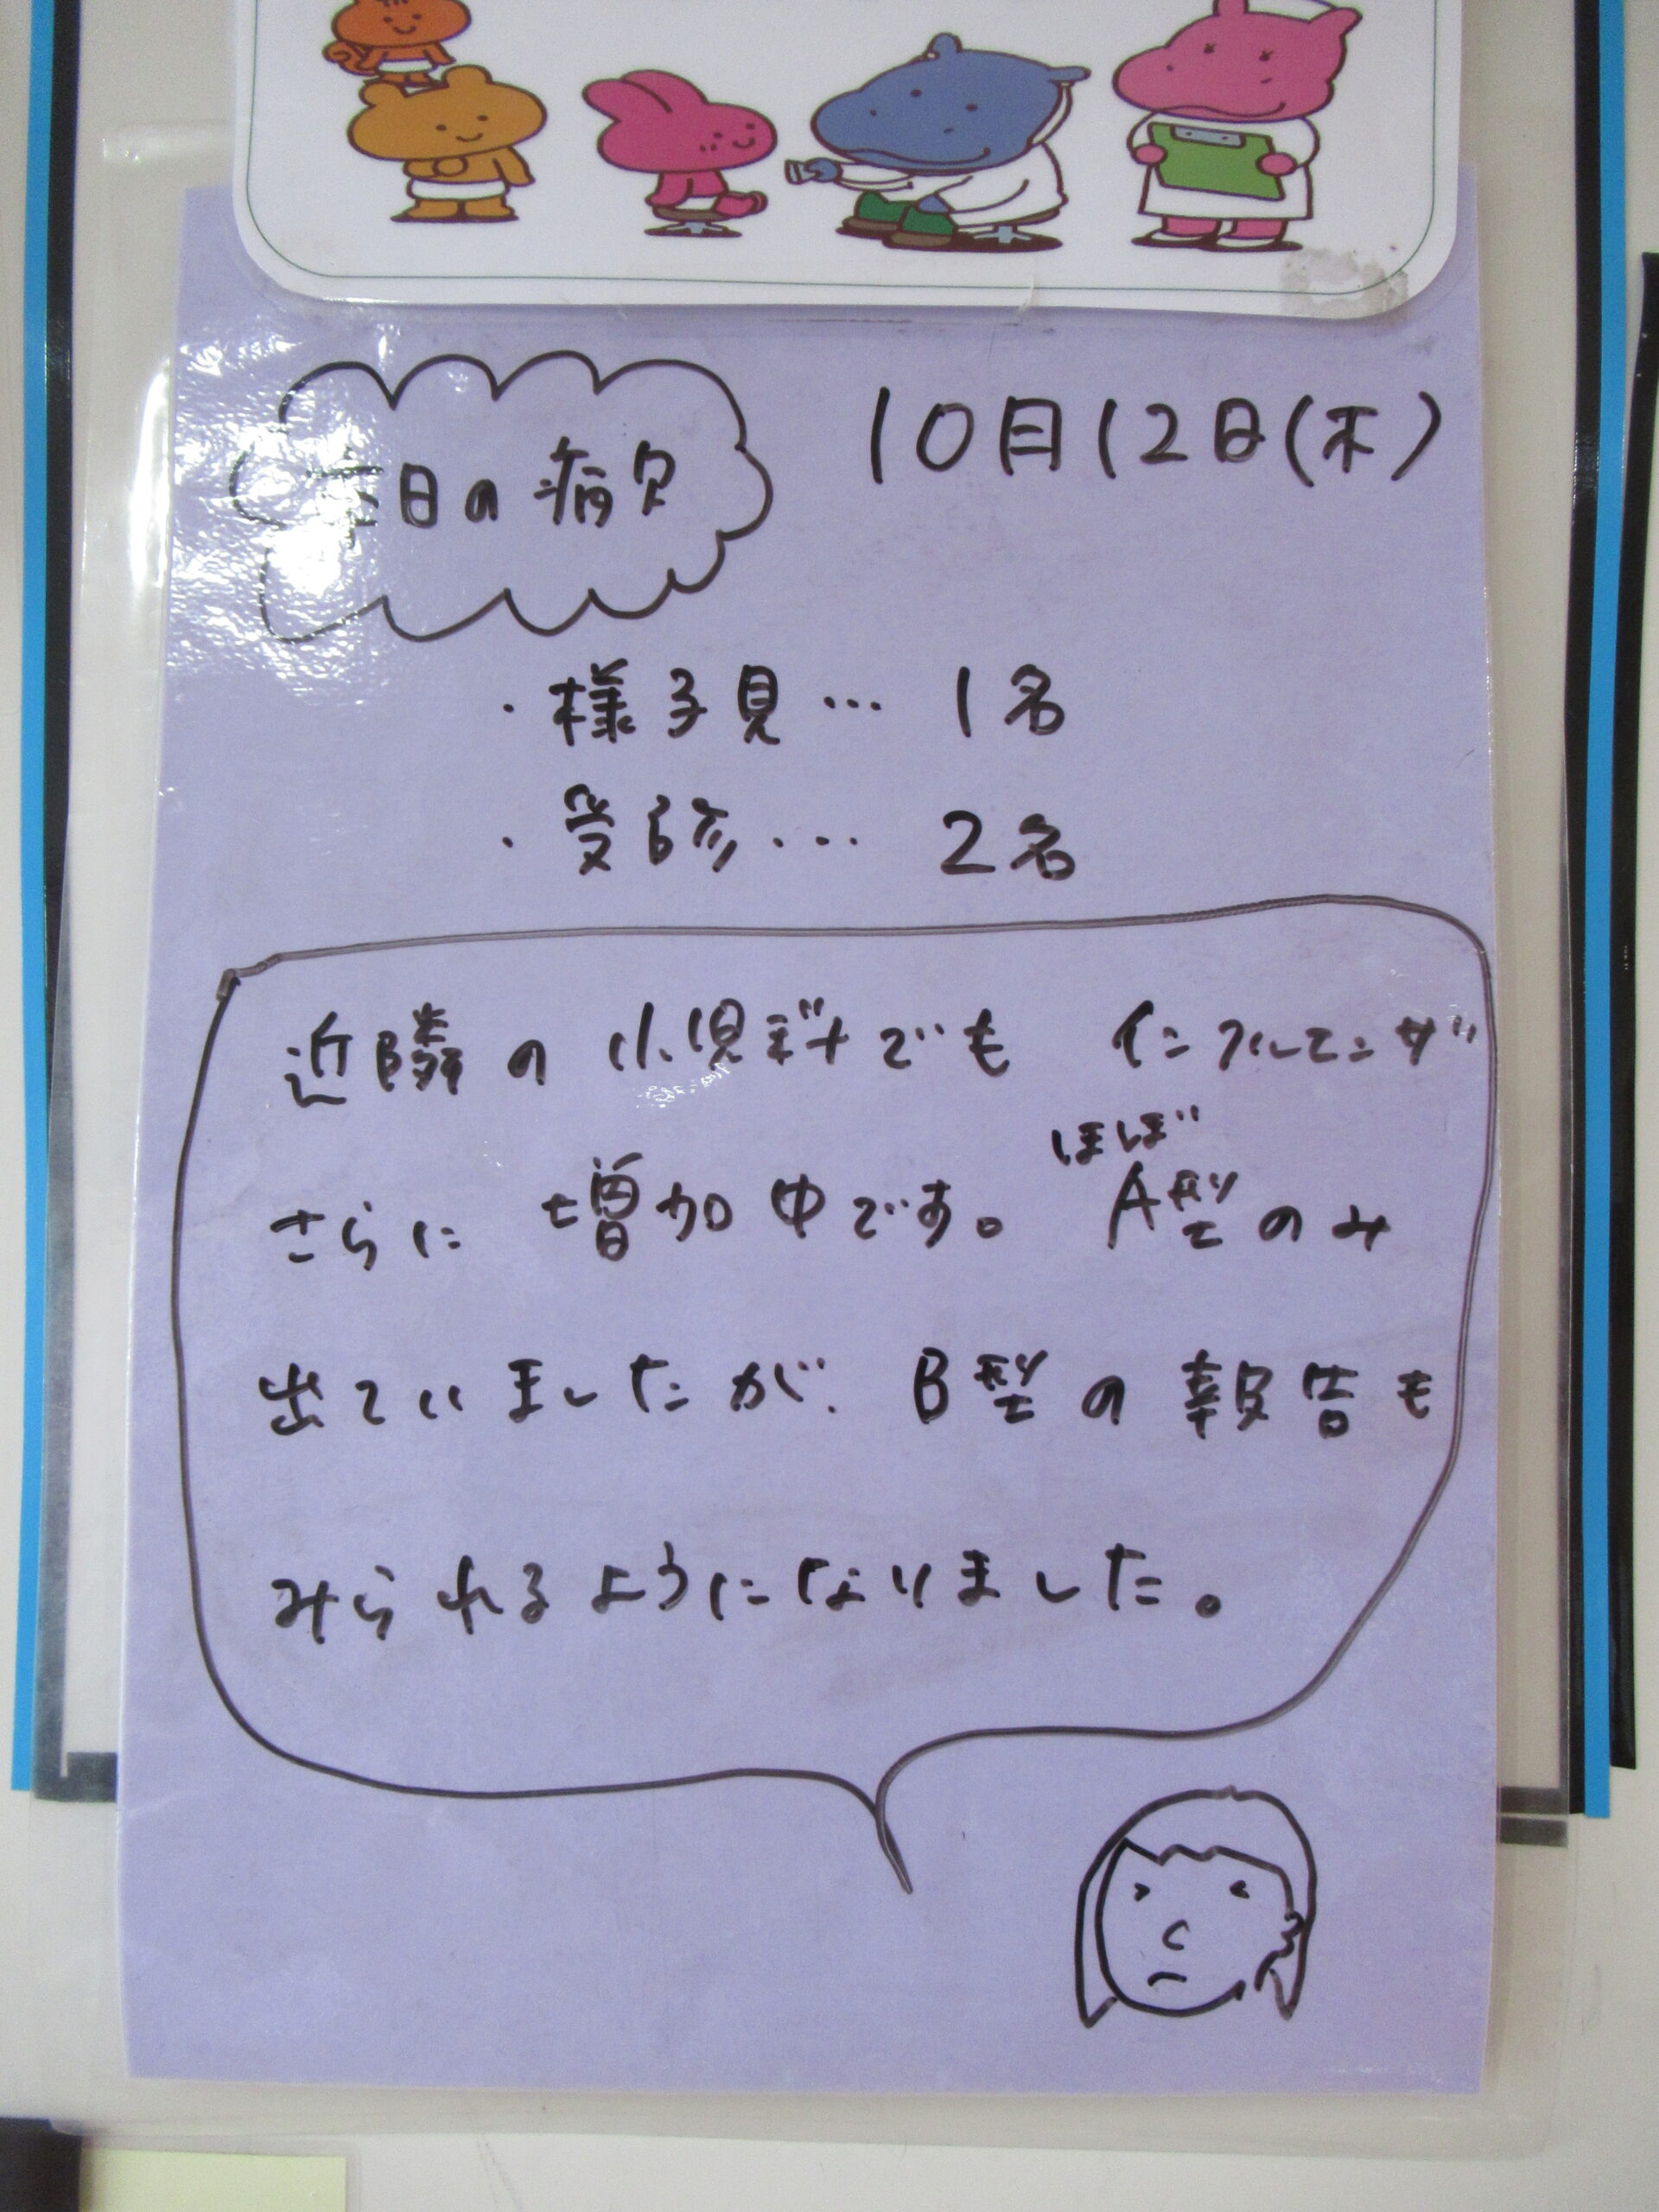 本日の病欠
10月12日(木)
・様子見… 1名
・受診… 2名
近隣の小児科でも インフルエンザ
さらに 増加中です。 ほぼA型のみ
出ていましたが、B型の報告も
みられるようになりました。